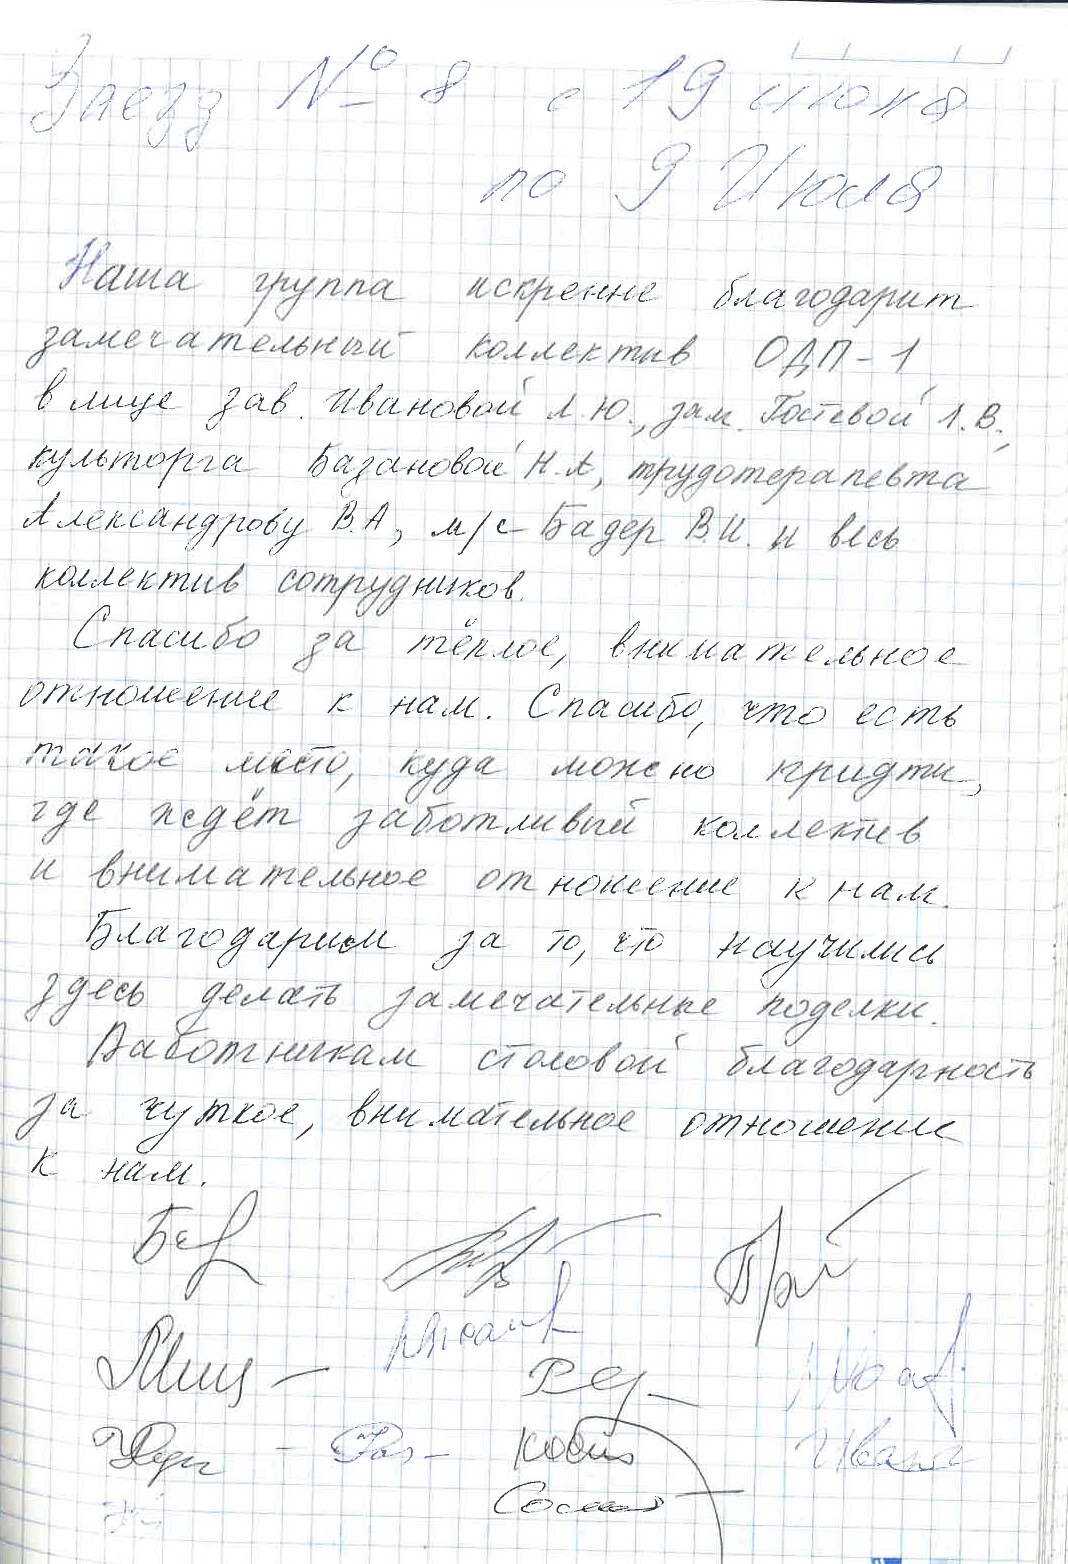 Заезд № 8 с 19 июня
по 9 Июля
Наша группа искренне благодарит
замечательный коллектив ОДП-1
в лице зав. Ивановой Л.Ю., зам. Гостевой Л.В.,
культорга Базановой Н.А, трудотерапевта
Александрову В.А, м/с Бадер В.И. и весь
коллектив сотрудников.
Спасибо за тёплое, внимательное
отношение к нам. Спасибо, что есть
такое место, куда можно придти,
где ждёт заботливый коллектив
и внимательное отношение к нам.
Благодарим за то, что научились
здесь делать замечательные поделки.
Работникам столовой благодарность
за чуткое, внимательное отношение
к нам.